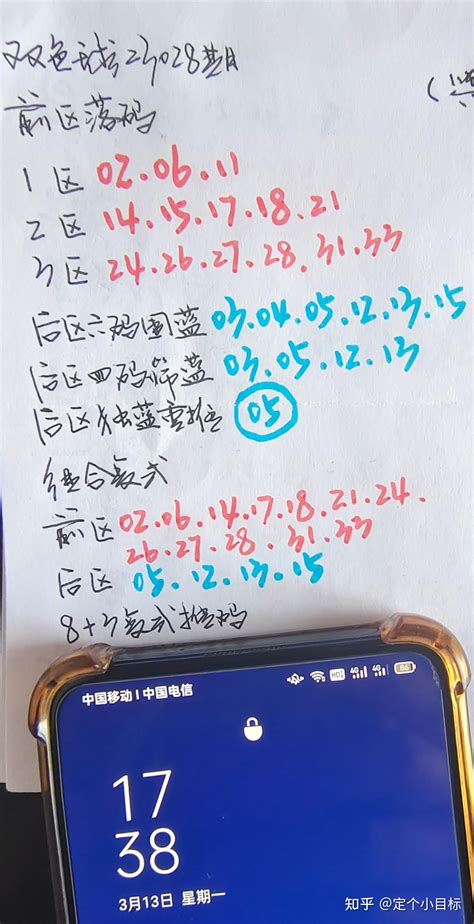 双色球23028期
前区落码
1区 02.06.11
2区 14.15.17.18.21
3区 24.26.27.28.31.33
后区六码围蓝 03.04.05.12.13.15
后区四码筛蓝 03.05.12.13
后区独蓝重推 05
综合复式
前区 02.06.14.17.18.21.24.
26.27.28.31.33
后区 05.12.13.15
8+3复式推码
中国移动 | 中国电信
HD 4G 4G 86
17
38
3月13日 星期一
知乎 @定个小目标